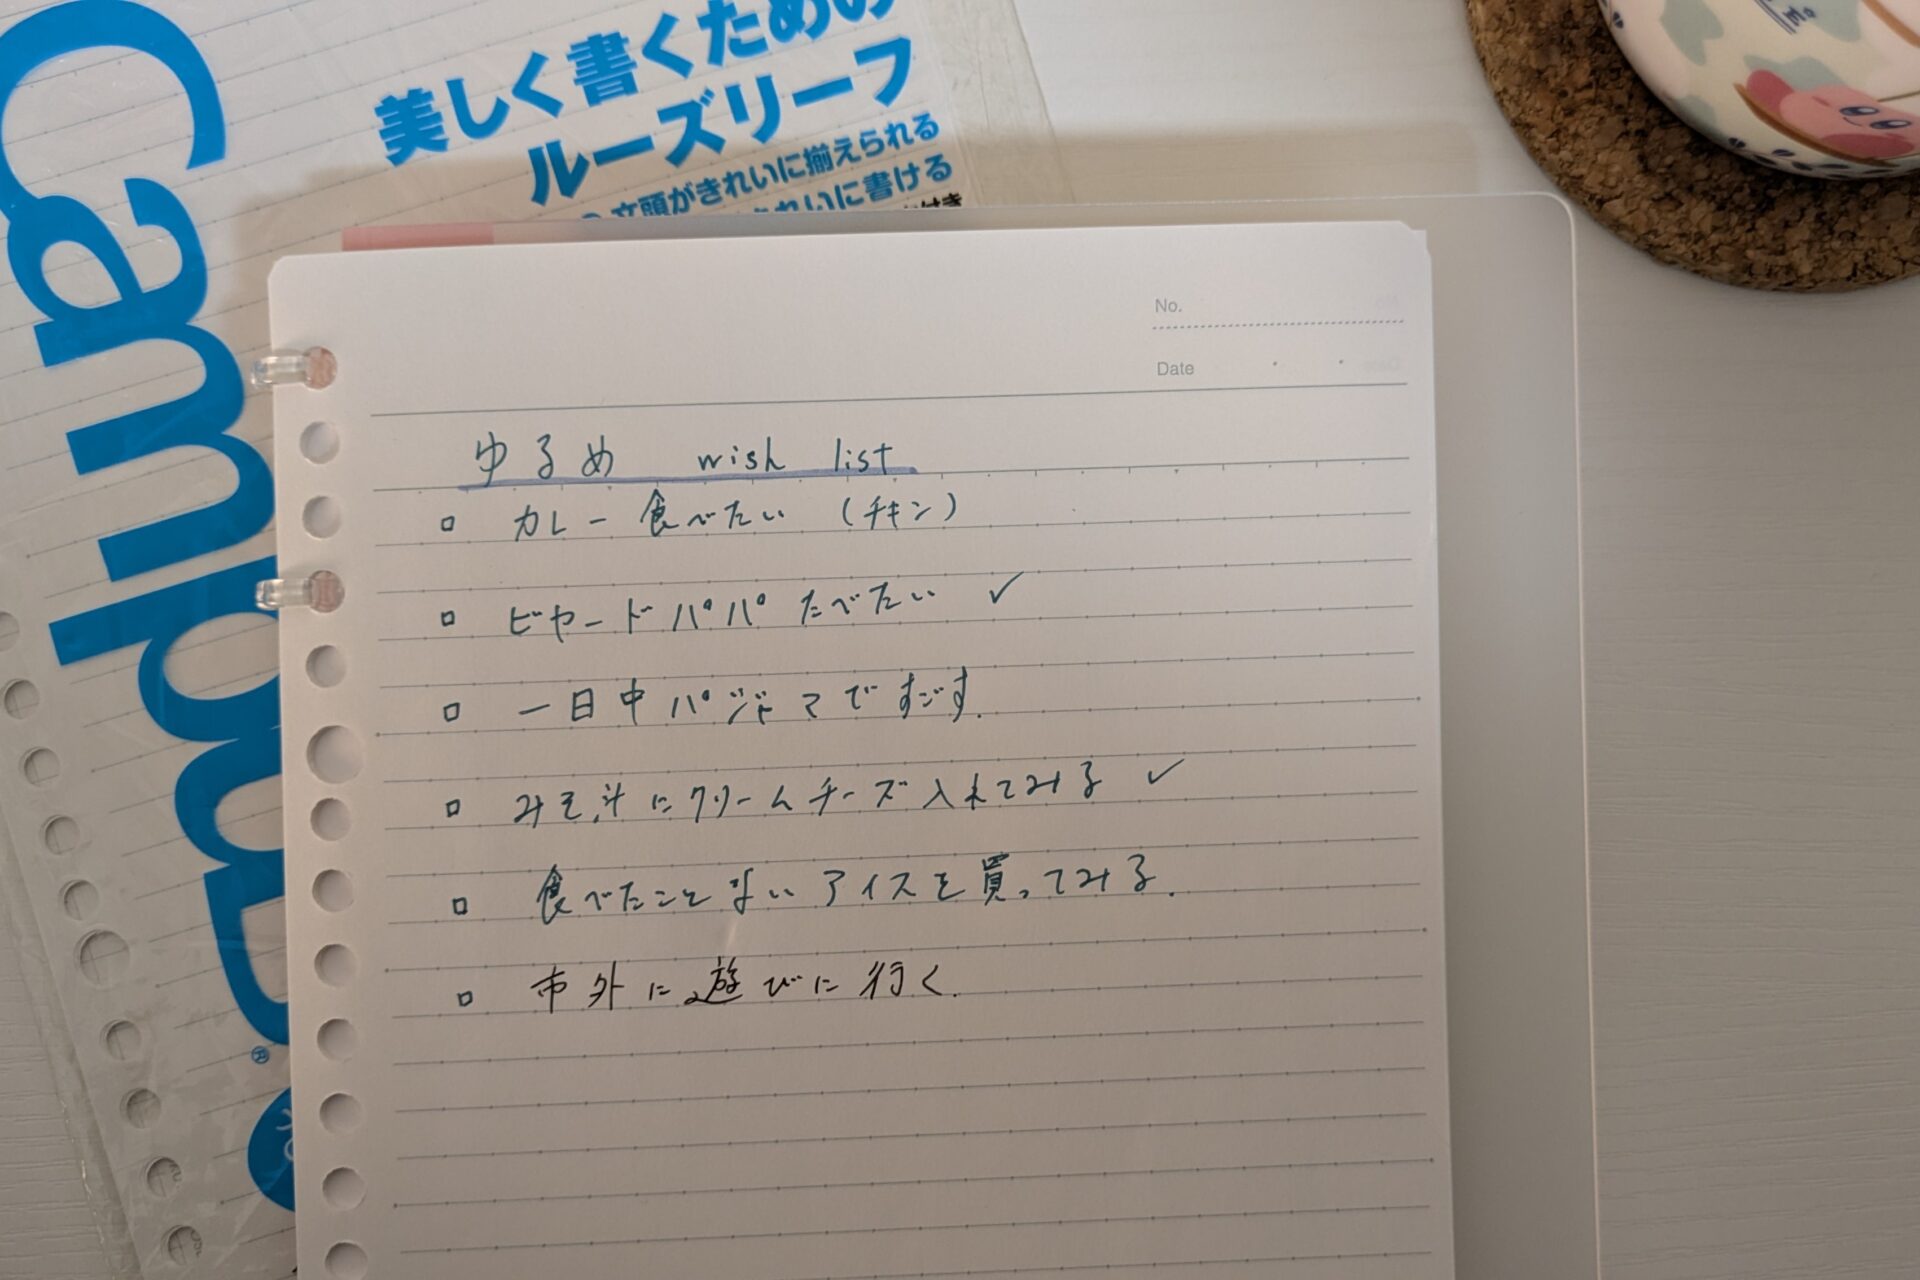 Campus
美しく書くための
ルーズリーフ
文頭がきれいに揃えられる
きれいに書ける
付き
No.
Date
ゆるめ wish list
□ カレー食べたい (チキン)
□ ビヤードパパ たべたい ✓
□ 一日中パジャマですごす.
□ みそ汁にクリームチーズ入れてみる ✓
□ 食べたことないアイスを買ってみる.
□ 市外に遊びに行く.